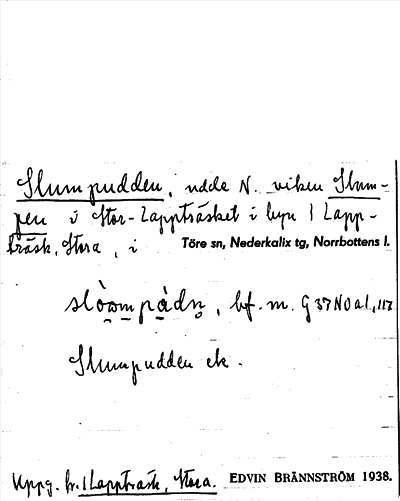 Slumpudden, udde N. viken Slum-
pen i Stor-Lappträsket i byn 1 Lapp-
träsk, Stora, i Töre sn, Nederkalix tg, Norrbottens l.
bf. m. G 37 NO a1, 117
Slumpudden ek.
Uppg. fr. 1 Lappträsk, Stora. EDVIN BRÄNNSTRÖM 1938.